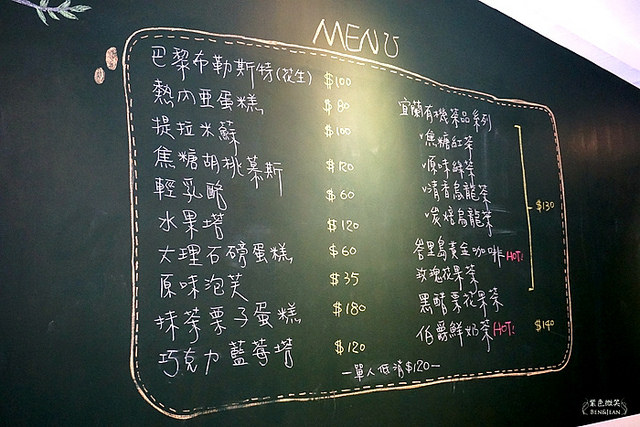 MENU
巴黎布勒斯特(花生) $100
熱內亞蛋糕 $80
提拉米蘇 $100
焦糖胡桃慕斯 $120
輕乳酪 $60
水果塔 $120
大理石磅蛋糕 $60
原味泡芙 $35
抹茶栗子蛋糕 $180
巧克力藍莓塔 $120
宜蘭有機茶品系列
焦糖紅茶
原味綠茶
清香烏龍茶
炭焙烏龍茶
$130
峇里島黃金咖啡 HOT!
玫瑰花果茶
黑醋栗花果茶
伯爵鮮奶茶 HOT! $140
—單人低消$120—
紫色微笑
BEN&JEAN